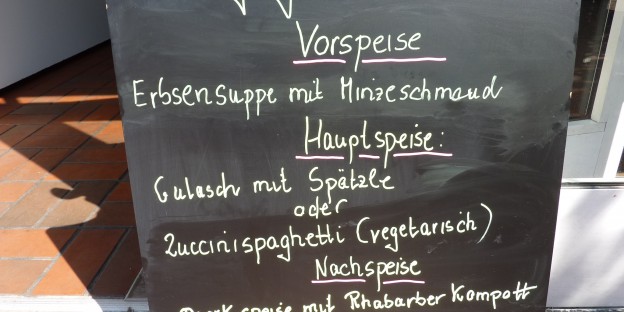 Vorspeise
Erbsensuppe mit Minzeschmand
Hauptspeise:
Gulasch mit Spätzle
oder
Zuccinispaghetti (vegetarisch)
Nachspeise
Quarkspeise mit Rhabarber Kompott